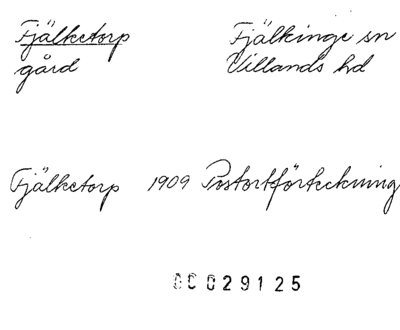 Fjälketorp Fjälkinge sn
gård Villands hd
Fjälketorp 1909 Postortförteckning
0C029125